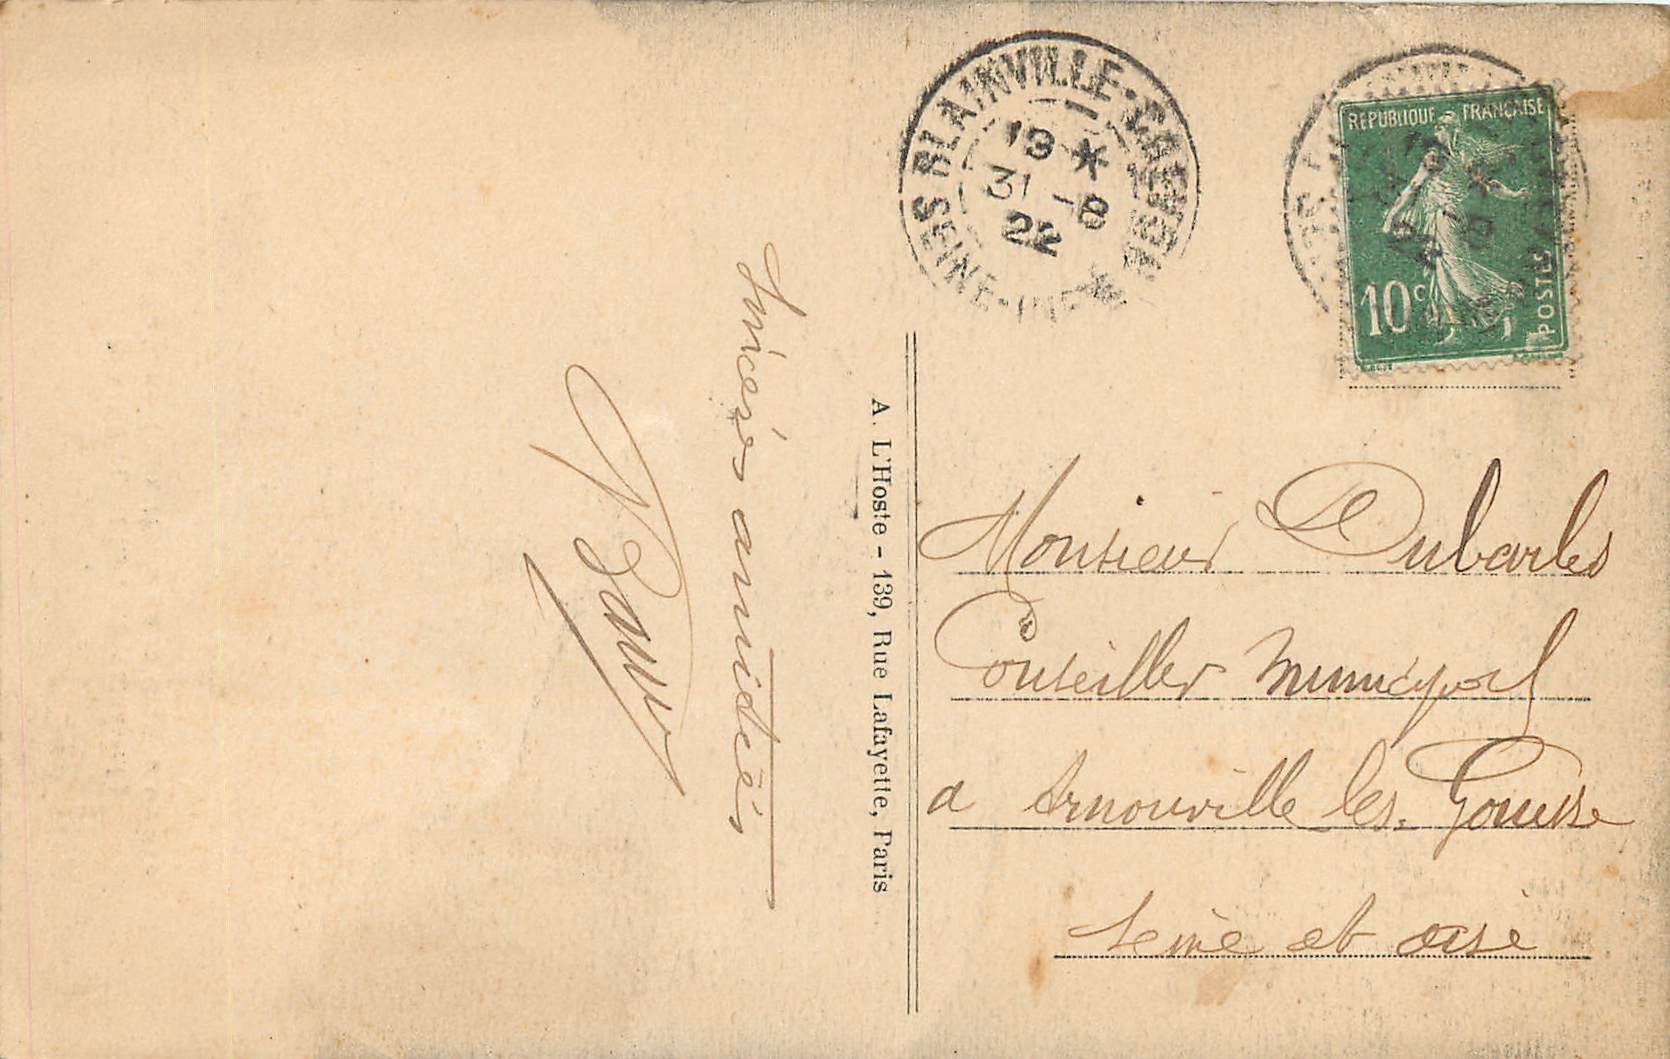 BLAINVILLE-CREVON
19 *
31 -8
22
SEINE-INFRE
REPUBLIQUE FRANÇAISE
10c
POSTES
Sincères amitiés
A. L'Hoste - 139, Rue Lafayette, Paris
Monsieur Dubarles
Conseiller Municipal
a Arnouville les. Gonesse
Seine et oise